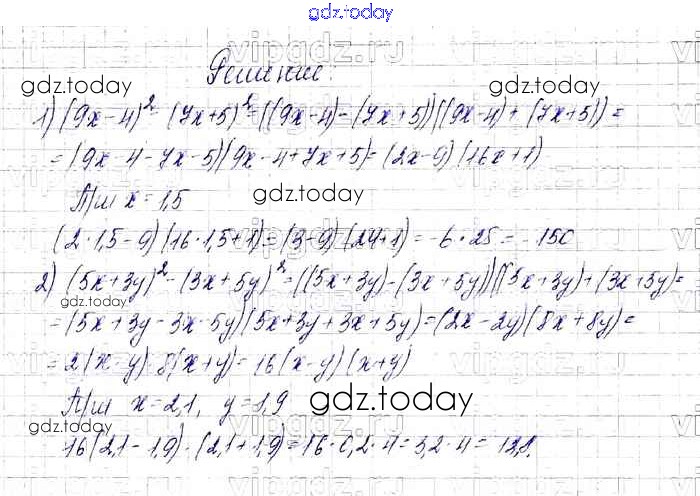 gdz.today
Решение:
1) (9x-4)² - (7x+5)² = ((9x-4) - (7x+5))((9x-4) + (7x+5)) =
= (9x-4-7x-5)(9x-4+7x+5) = (2x-9)(16x+1)
При x = 1,5
(2·1,5-9)(16·1,5+1) = (3-9)(24+1) = -6·25 = -150
2) (5x+3y)² - (3x+5y)² = ((5x+3y) - (3x+5y))((5x+3y) + (3x+5y) =
= (5x+3y-3x-5y)(5x+3y+3x+5y) = (2x-2y)(8x+8y) =
= 2(x-y)·8(x+y) = 16(x-y)(x+y)
При x = 2,1, y = 1,9
16(2,1-1,9)·(2,1+1,9) = 16·0,2·4 = 3,2·4 = 12,8.